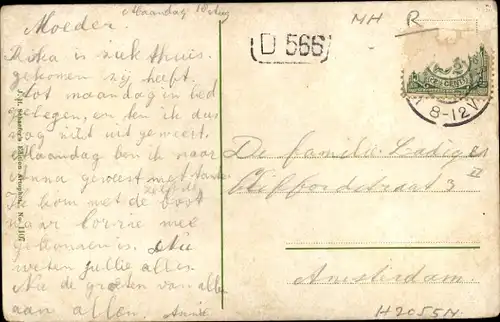 Maandag
MH R
Moeder.
D 566
Rika is ziek thuis
gekomen zij heeft
tot maandag in bed
gelegen, en ben ik dus
nog niet uit geweest.
Maandag ben ik naar
geweest met tante
zelfde
Ik kom met de boot
naar mee
gekomen is. Nu
weten jullie alles.
Nu de groeten van alle
aan allen. Annie
8-12V
De familie Ladiges
Cliffordstraat 3
II
Amsterdam.
H2055N.